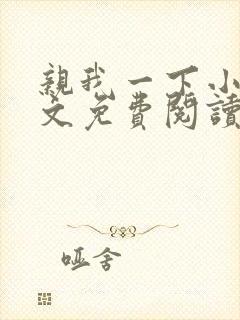 親我一下小
文免費閱讀
哑舍